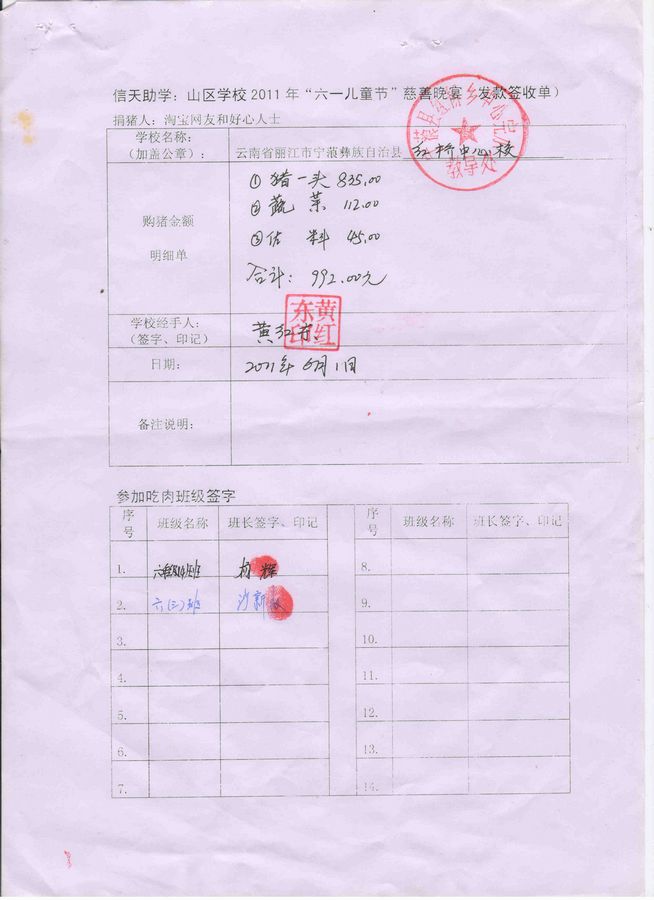 信天助学：山区学校2011年“六一儿童节”慈善晚宴（发款签收单）
捐猪人：淘宝网友和好心人士
学校名称：
（加盖公章）：
云南省丽江市宁蒗彝族自治县 红桥中心校
教导处
购猪金额
明细单
① 猪一头 835.00
② 蔬菜 112.00
③ 佐料 45.00
合计：992.00元
学校经手人：
（签字、印记）
黄红东
黄红东印
日期：
2011年6月1日
备注说明：
参加吃肉班级签字
序号 班级名称 班长签字、印记 序号 班级名称 班长签字、印记
1. 杨辉 8.
2. 六(二)班 沙新 9.
3. 10.
4. 11.
5. 12.
6. 13.
7. 14.